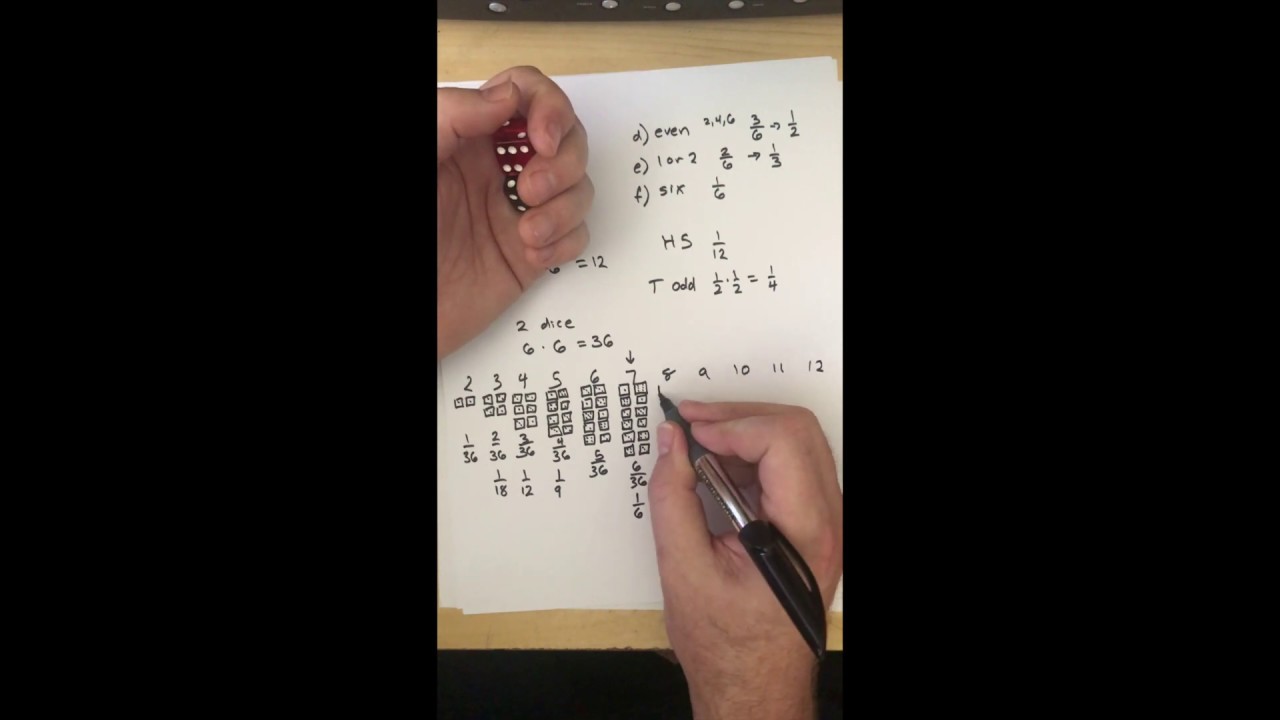 d) even 2,4,6 3/6 → 1/2
e) 1 or 2 2/6 → 1/3
f) six 1/6
HS 1/12
6 = 12
T odd 1/2 · 1/2 = 1/4
2 dice
6 · 6 = 36
↓
2 3 4 5 6 7 8 9 10 11 12
1/36 2/36 3/36 4/36 5/36 6/36
1/18 1/12 1/9 1/6